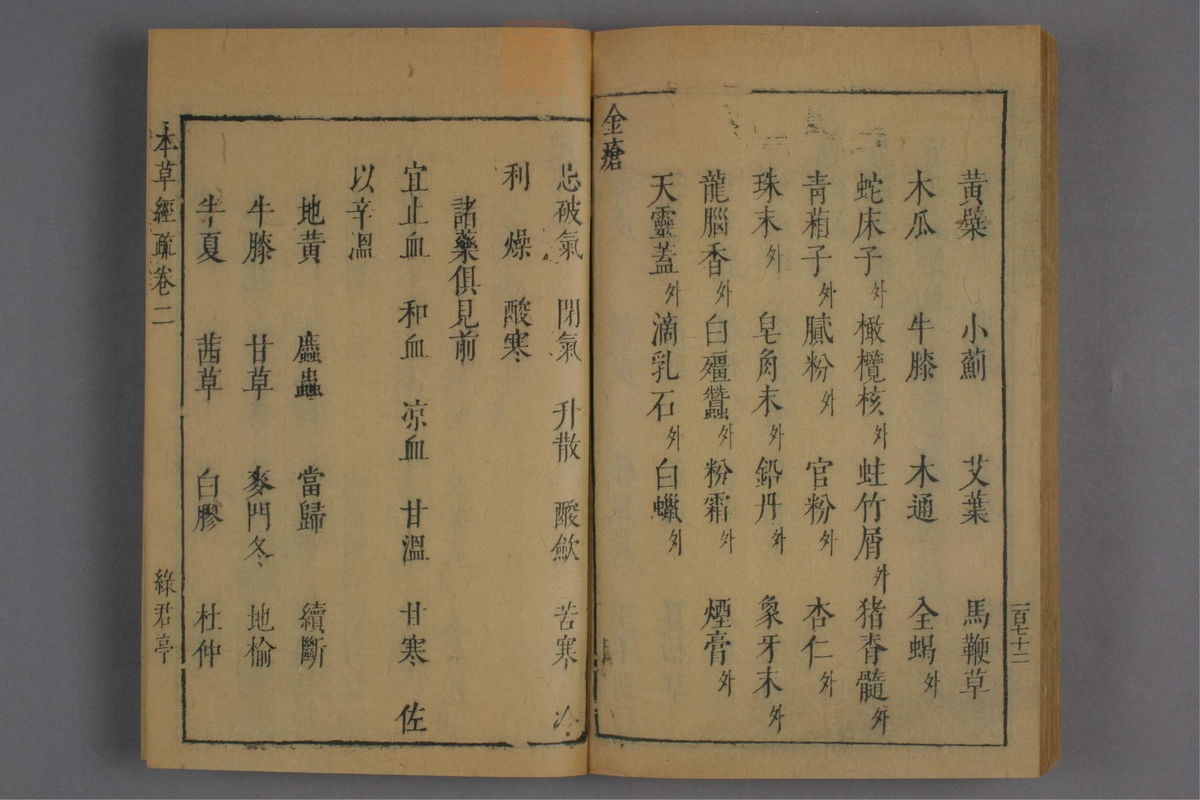 黃蘗 小薊 艾葉 馬鞭草
木瓜 牛膝 木通 全蝎外
蛇床子外 橄欖核外 蛀竹屑外 猪脊髓外
青葙子外 膩粉外 官粉外 杏仁外
珠末外 皂角末外 鉛丹外 象牙末外
龍腦香外 白殭蠶外 粉霜外 煙膏外
天靈蓋外 滴乳石外 白蠟外
金瘡
一百七十二
忌破氣 閉氣 升散 酸歛 苦寒 冷
利 燥 酸寒
諸藥俱見前
宜止血 和血 凉血 甘溫 甘寒 佐
以辛溫
地黃 䗪蟲 當歸 續斷
牛膝 甘草 麥門冬 地榆
半夏 茜草 白膠 杜仲
本草經疏卷二
綠君亭